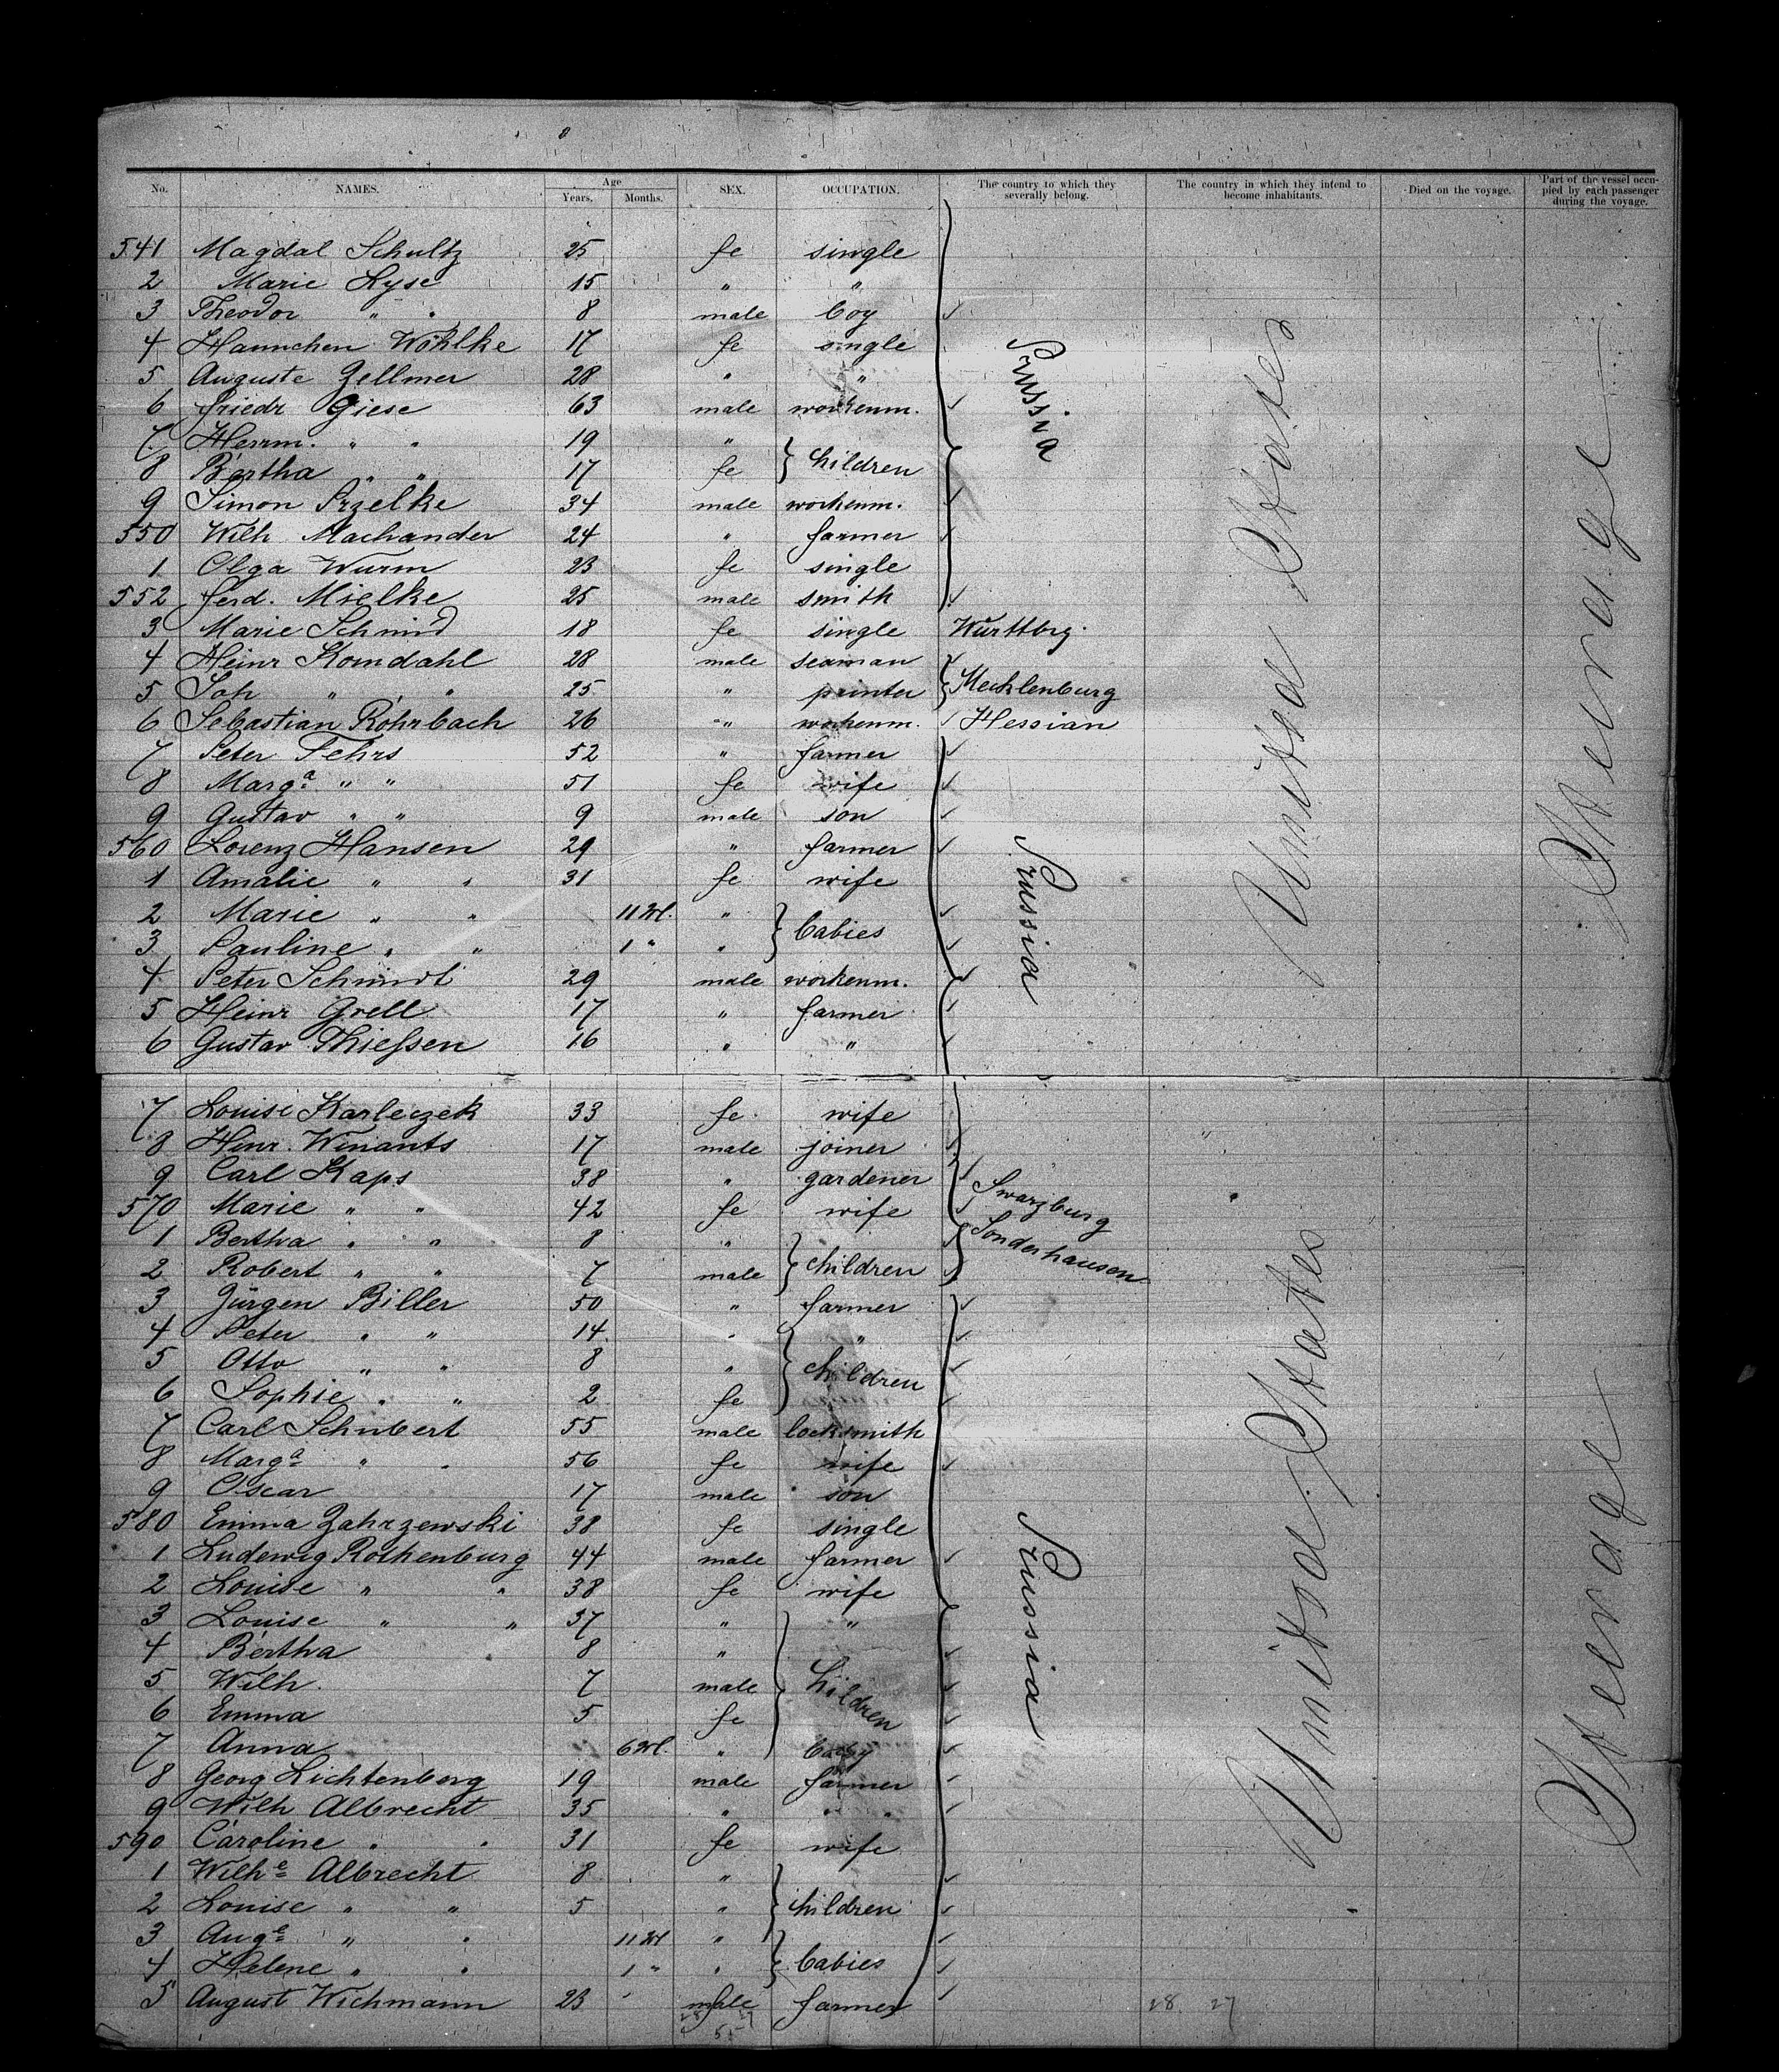 No. NAMES. Age Years. Months. SEX. OCCUPATION. The country to which they severally belong. The country in which they intend to become inhabitants. Died on the voyage. Part of the vessel occupied by each passenger during the voyage.
541 Magdal Schultz 25 fe single
2 Marie Lyse 15 " "
3 Theodor " " 8 male boy
4 Hannchen Wohlke 17 fe single
5 Auguste Zellmer 28 " "
6 Friedr Giese 63 male workenm.
7 Herrm. " " 19 "
8 Bertha " " 17 fe children
9 Simon Przelke 34 male workenm.
550 Wilh Machander 24 " farmer
1 Olga Wurm 23 fe single
552 Ferd. Mielke 25 male smith
Prussia
3 Marie Schmid 18 fe single Württbrg.
4 Heinr Komdahl 28 male seaman
5 Joh " " 25 " painter Mecklenburg
6 Sebastian Rohrbach 26 " workenm. Hessian
7 Peter Fehrs 52 " farmer
8 Marga " " 51 fe wife
9 Gustav " " 9 male son
560 Lorenz Hansen 29 " farmer
1 Amalie " " 31 fe wife
2 Marie " " 11 M. "
3 Pauline " " 1 " " babies
4 Peter Schmidt 29 male workenm.
5 Heinr Grell 17 " farmer
6 Gustav Thießen 16 " "
Prussia
United States
Steerage
7 Louise Karleczek 33 fe wife
8 Hinr. Winants 17 male joiner
9 Carl Kaps 38 " gardener
570 Marie " " 42 fe wife
1 Bertha " " 8 "
2 Robert " " 7 male children
Swarzburg
Sonderhausen
3 Jürgen Biller 50 " farmer
4 Peter " " 14 " "
5 Otto " " 8 " children
6 Sophie " " 2 fe
7 Carl Schubert 55 male locksmith
8 Marga " " 56 fe wife
9 Oscar 17 male son
580 Emma Zahrzewski 38 fe single
1 Ludewig Rothenburg 44 male farmer
2 Louise " " 38 fe wife
3 Louise " " 37 " "
4 Bertha 8 "
5 Wilh. 7 male children
6 Emma 5 fe
7 Anna 6 M. " baby
8 Georg Lichtenberg 19 male farmer
9 Wilh Albrecht 35 " "
590 Caroline " " 31 fe wife
1 Wilhe Albrecht 8 "
2 Louise " " 5 " children
3 Auge " " 11 M "
4 Helene " " 1 " " babies
5 August Wichmann 23 male farmer
28 27
Prussia
United States
Steerage